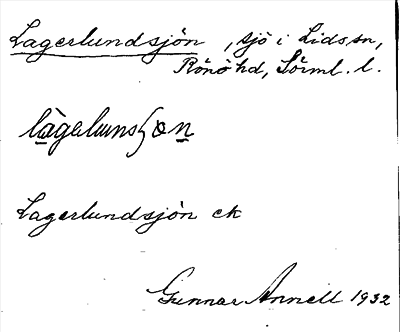 Lagerlundsjön, sjö i Lids sn,
Rönö hd, Sörml. l.
Lagerlundsjön ek
Gunnar Annell 1932